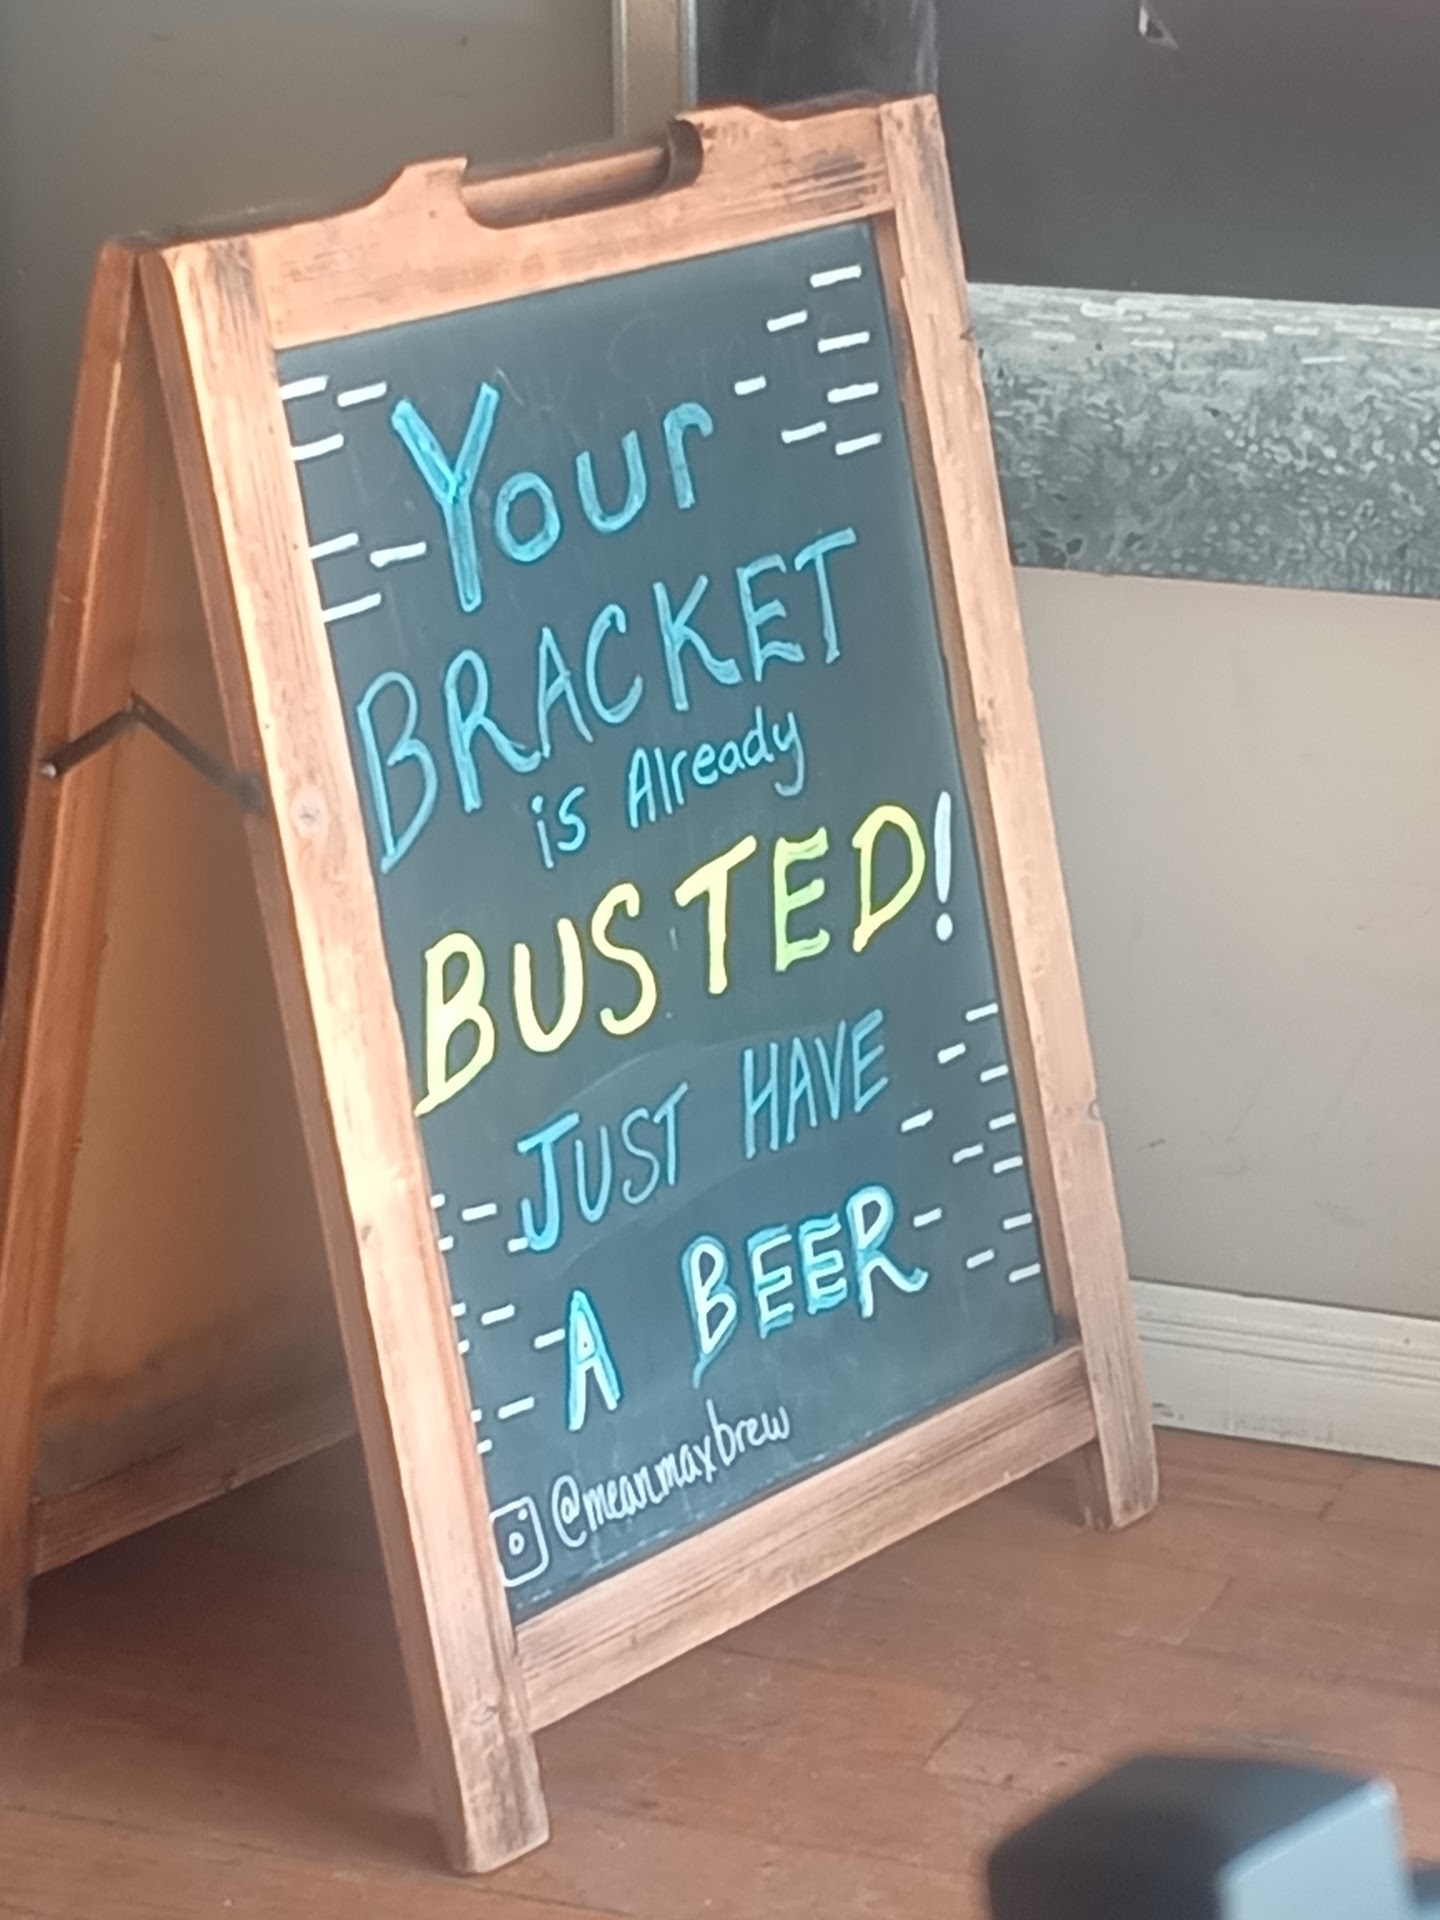 Your
BRACKET
is Already
BUSTED!
JUST HAVE
A BEER
@meanmaxbrew